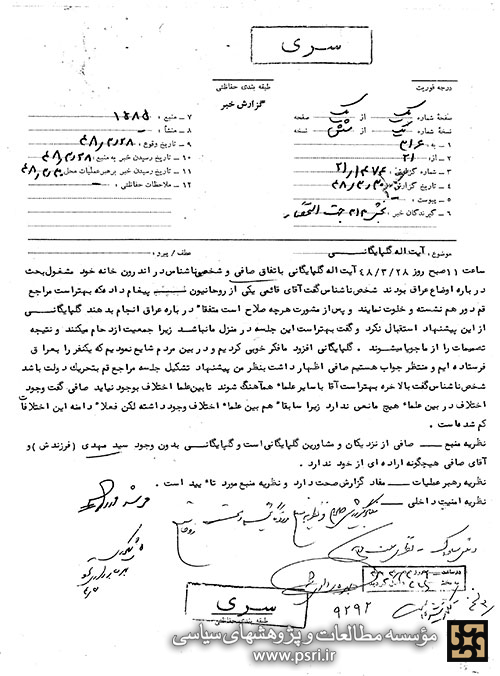 سری
درجه فوریت
طبقه بندی حفاظتی
گزارش خبر
صفحه شماره یک از یک صفحه
نسخه شماره یک از شش نسخه
۱ - به : ۳۱۶
۲ - از : ۲۱
۳ - شماره گزارش : ۲۱/۱۴۷۴
۴ - تاریخ گزارش : ۴۸/۳/۳۰
۵ - پیوست :
۶ - گیرندگان خبر : بخش ۳۱۲ جهت استحضار
۷ - منبع : ۱۲۸۵
۸ - منشأ :
۹ - تاریخ وقوع : ۴۸/۳/۲۸
۱۰ - تاریخ رسیدن خبر به منبع : ۴۸/۳/۲۸
۱۱ - تاریخ رسیدن خبر به رهبر عملیات محل : ۴۸/۳/۳۰
۱۲ - ملاحظات حفاظتی :
موضوع : آیت اله گلپایگانی
عطف / پیرو :
ساعت ۱۱ صبح روز ۴۸/۳/۲۸ آیت اله گلپایگانی باتفاق صافی و شخصی ناشناس در اندرون خانه خود مشغول بحث
در باره اوضاع عراق بودند شخص ناشناس گفت آقای قائمی یکی از روحانیون پیغام داده که بهتر است مراجع
قم دور هم نشسته و خلوت نمایند و پس از مشورت هرچه صلاح است متفقاً در باره عراق انجام بدهند گلپایگانی
از این پیشنهاد استقبال نکرد و گفت بهتر است این جلسه در منزل ما نباشد زیرا جمعیت ازدحام میکنند و نتیجه
تصمیمات را از ما جویا میشوند . گلپایگانی افزود ما فکر خوبی کردیم و در بین مردم شایع نمودیم که یکنفر را بعراق
فرستاده ایم و منتظر جواب هستیم صافی اظهار داشت بنظر من پیشنهاد تشکیل جلسه مراجع قم بتحریک دولت باشد
شخص ناشناس گفت بالاخره بهتر است آقا با سایر علماء هم آهنگ شوند تا بین علماء اختلاف بوجود نیاید صافی گفت وجود
اختلاف در بین علماء هیچ مانعی ندارد زیرا سابقاً هم بین علماء اختلاف وجود داشته لکن فعلاً دامنه این اختلافات
کم شده است .
نظریه منبع ـ صافی از نزدیکان و مشاورین گلپایگانی است و گلپایگانی بدون وجود سید مهدی ( فرزندش ) و
آقای صافی هیچگونه اراده ای از خود ندارد .
نظریه رهبر عملیات ـ مفاد گزارش صحت دارد و نظریه منبع مورد تائید است .
نظریه امنیت داخلی ـ
سری
طبقه بندی حفاظتی
۹۲۹۲
مؤسسه مطالعات و پژوهشهای سیاسی
www.psri.ir